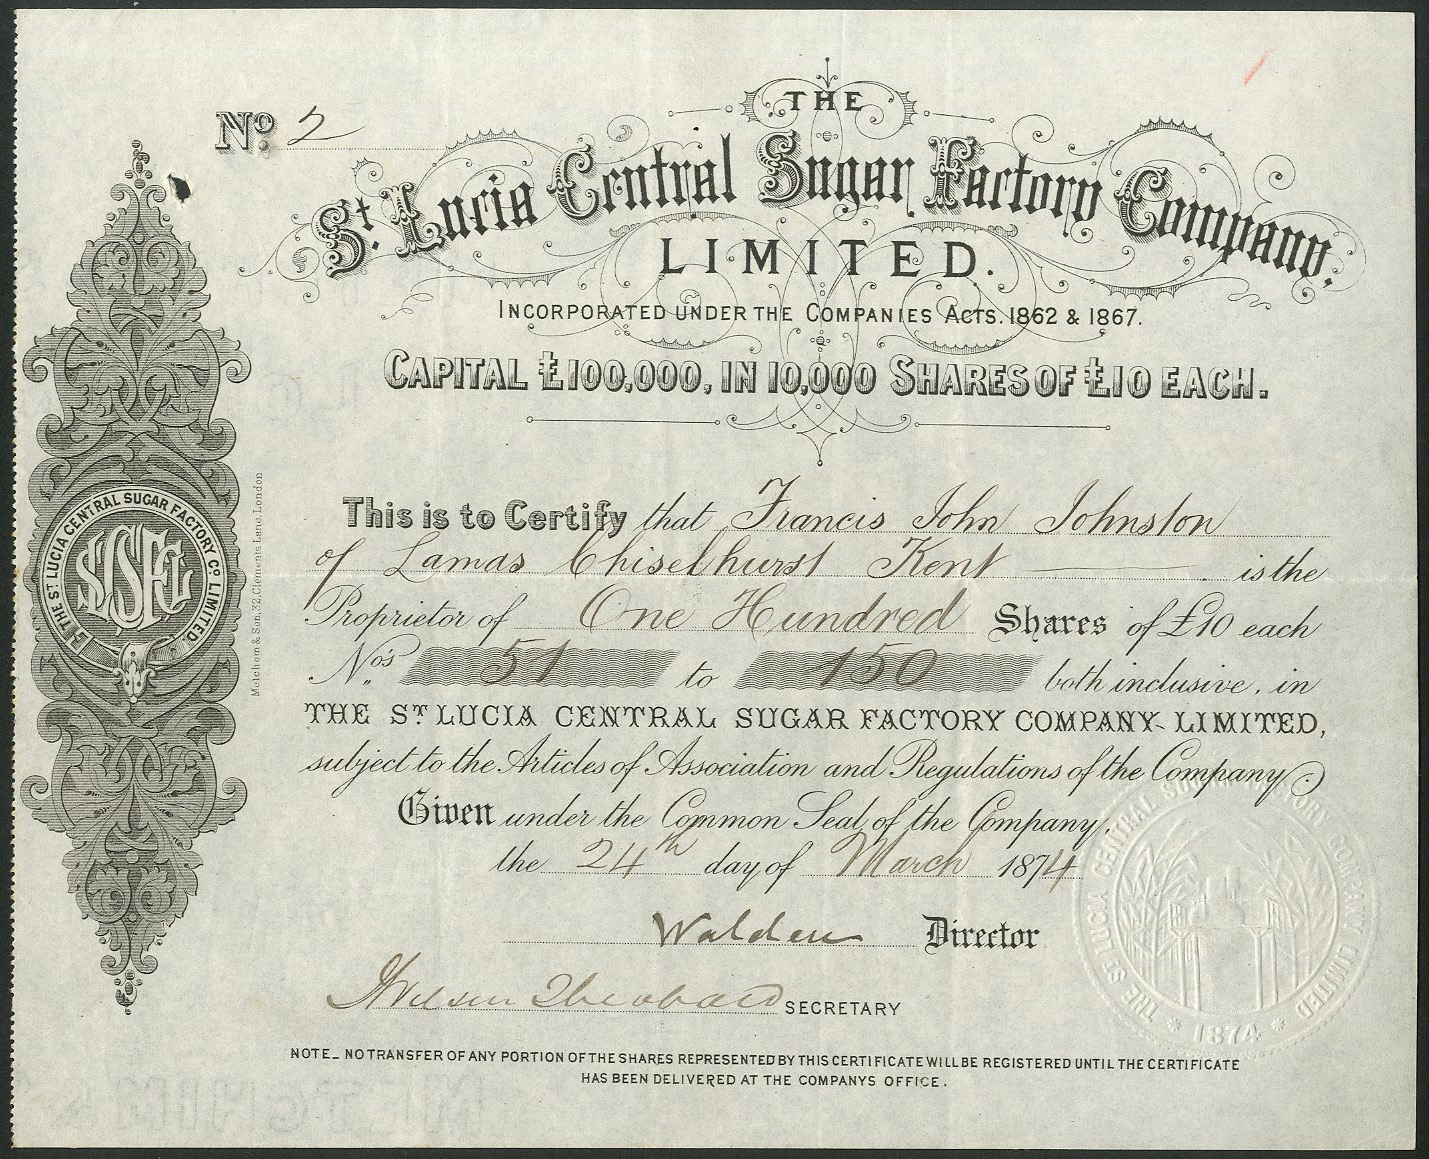 No. 2
THE
St. Lucia Central Sugar Factory Company.
LIMITED.
INCORPORATED UNDER THE COMPANIES ACTS. 1862 & 1867.
CAPITAL £100,000, IN 10,000 SHARES OF £10 EACH.
This is to Certify that Francis John Johnston
of Lamas Chiselhurst Kent is the
Proprietor of One Hundred Shares of £10 each
No's 51 to 150 both inclusive, in
THE ST LUCIA CENTRAL SUGAR FACTORY COMPANY LIMITED,
subject to the Articles of Association and Regulations of the Company.
Given under the Common Seal of the Company,
the 24th day of March 1874
Director
SECRETARY
NOTE_ NO TRANSFER OF ANY PORTION OF THE SHARES REPRESENTED BY THIS CERTIFICATE WILL BE REGISTERED UNTIL THE CERTIFICATE
HAS BEEN DELIVERED AT THE COMPANYS OFFICE.
THE ST LUCIA CENTRAL SUGAR FACTORY CO LIMITED.
Metchem & Son, 32, Clements Lane, London
THE ST LUCIA CENTRAL SUGAR FACTORY COMPANY LIMITED
* 1874 *